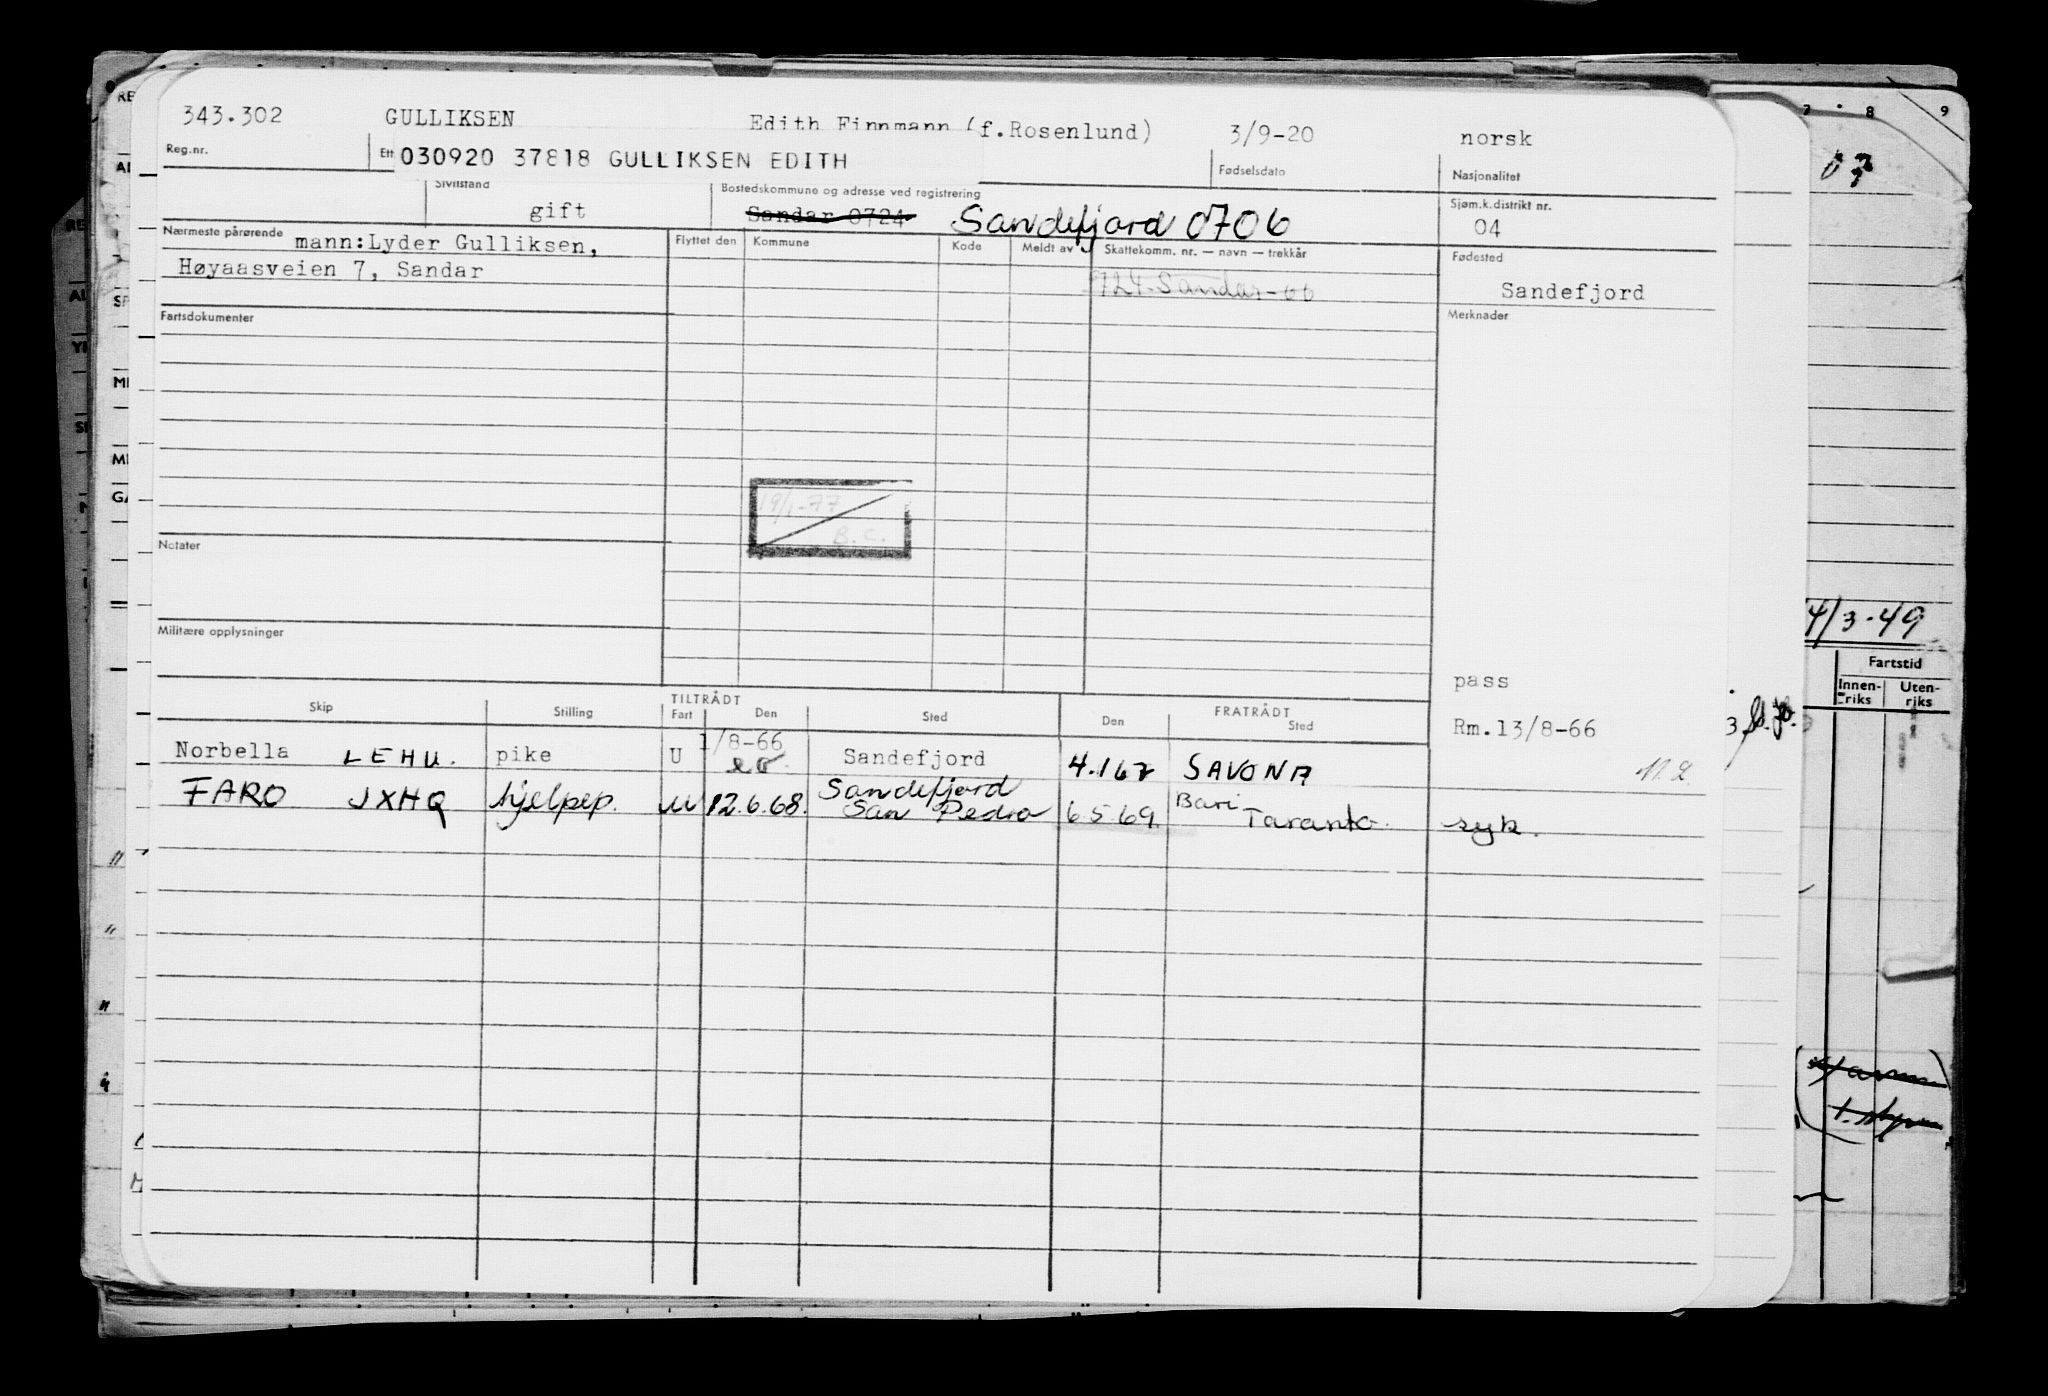 343.302 GULLIKSEN Edith Finnmann (f.Rosenlund) 3/9-20 norsk
Reg.nr. Ett 030920 37818 GULLIKSEN EDITH Fødselsdato Nasjonalitet
Sivilstand Bostedskommune og adresse ved registrering Sjøm.k.distrikt nr.
gift Sandar 0724 Sandefjord 0706 04
Nærmeste pårørende mann:Lyder Gulliksen, Flyttet den Kommune Kode Meldt av Skattekomm. nr. — navn — trekkår Fødested
Høyaasveien 7, Sandar 0724-Sandar-66 Sandefjord
Fartsdokumenter Merknader
19/1-77
B.C.
Notater
Militære opplysninger
pass
TILTRÅDT FRATRÅDT
Skip Stilling Fart Den Sted Den Sted Rm.13/8-66
Norbella LEHU. pike U 1/8-66 Sandefjord 4.1 67 SAVONA
FARO JXHQ hjelpep. U 12.6.68. Sandefjord San Pedro 6 5 69 Bari Taranto. syk.
7 8 9
07
4/3-49
Fartstid
Innenriks Utenriks